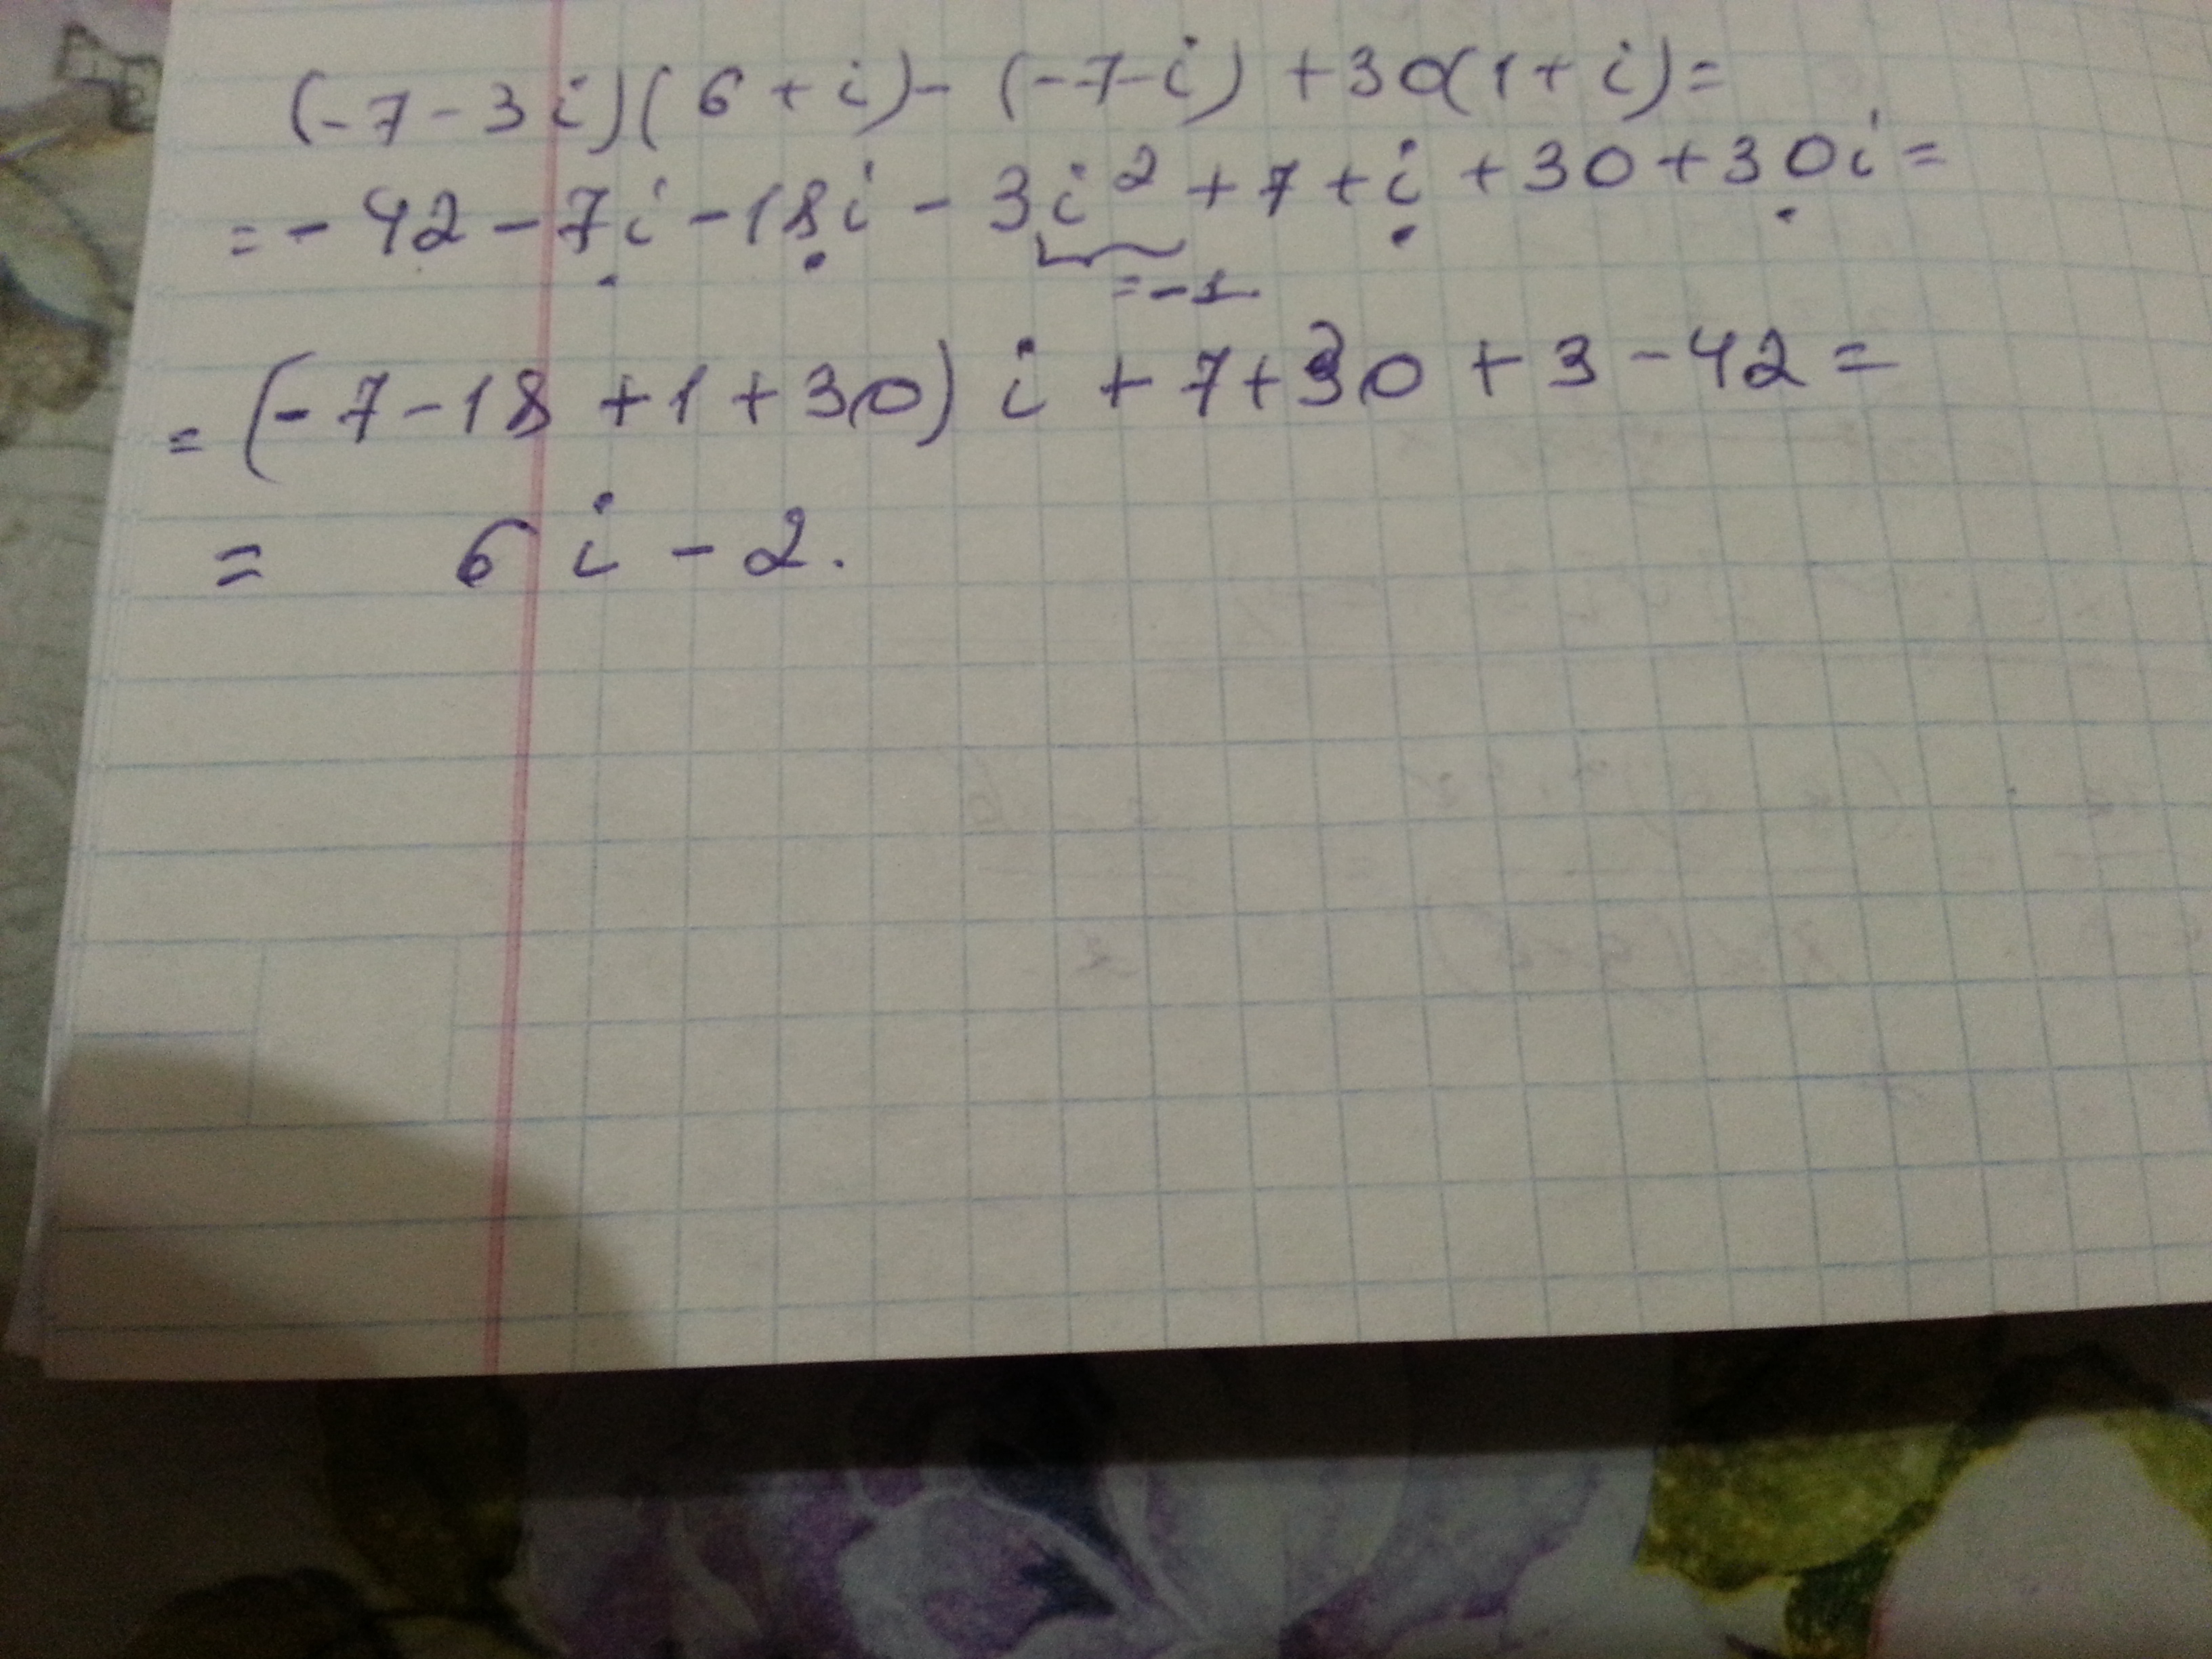 (-7-3i)(6+i)-(-7-i)+30(1+i)=
=-42-7i-18i-3i²+7+i+30+30i=
=-1
=(-7-18+1+30)i+7+30+3-42=
= 6i-2.